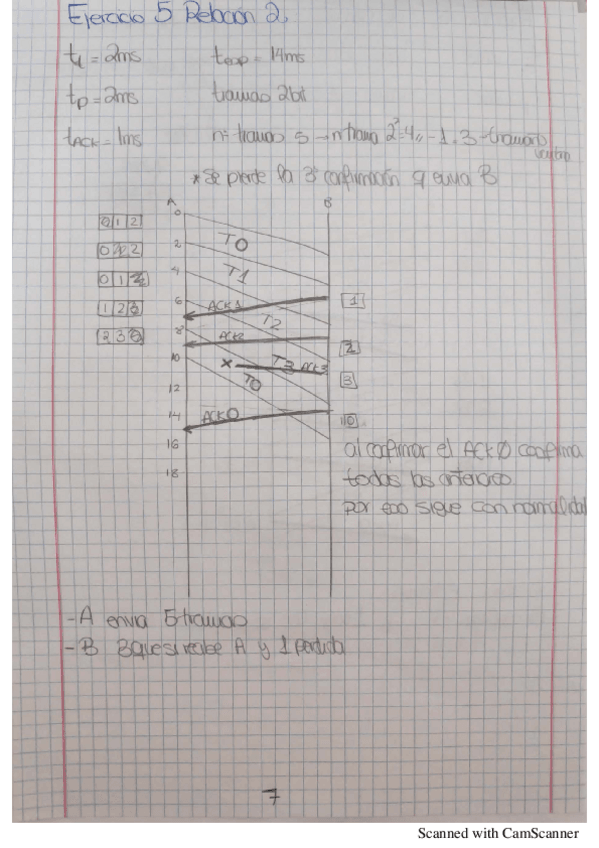 Ejercicio 5 Relación 2.
t_t = 2ms t_exp = 14ms
t_p = 2ms tramas 2bit
t_ACK = 1ms nº tramas 5 → n trama 2² = 4 - 1. 3 - tramas
* Se pierde la 3ª confirmación q envia B
A B
0
0 1 2
T0
0 1 2 2
T1
4
0 1 2
6 ACK1 1
1 2 3 T2
8 ACK2
2 3 0 2
10 x T3 ACK3
T0 3
12
14 ACK0 0
16 al confirmar el ACK0 confirma
18 todas las anteriores.
por eso sigue con normalidad
- A envia 5 tramas
- B 3 que si recibe A y 1 perdida
7
Scanned with CamScanner